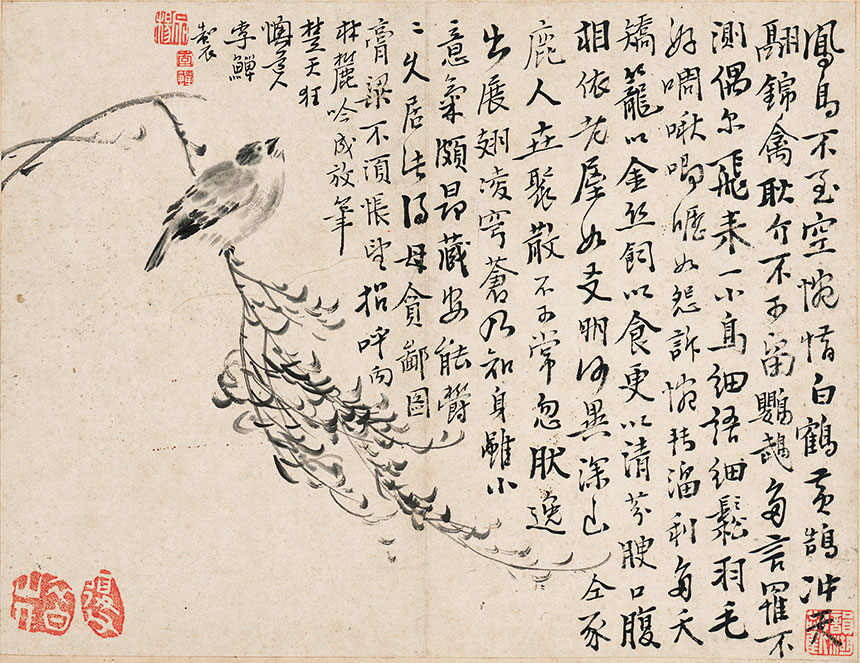 鳳鳥不至空惋惜白鶴黃鵠冲天
翮錦禽耿介不可留鸚鵡多言罹不
測偶尔飛来一小鳥細語細鬆羽毛
好啁啾唧如怨訴惋轉溜利多夭
矯籠以金丝飼以食更以清芬腴口腹
相依老屋如友朋何異深山仝豕
鹿人聚散不可常忽肰逸
出展翅凌穹蒼乃知身雖小
意氣頗昂藏安能欝
二久居得毋貪鄙图
膏粱不須悵望招呼向
林麓吟成放筆
楚天狂
懊道人
李鱓
製